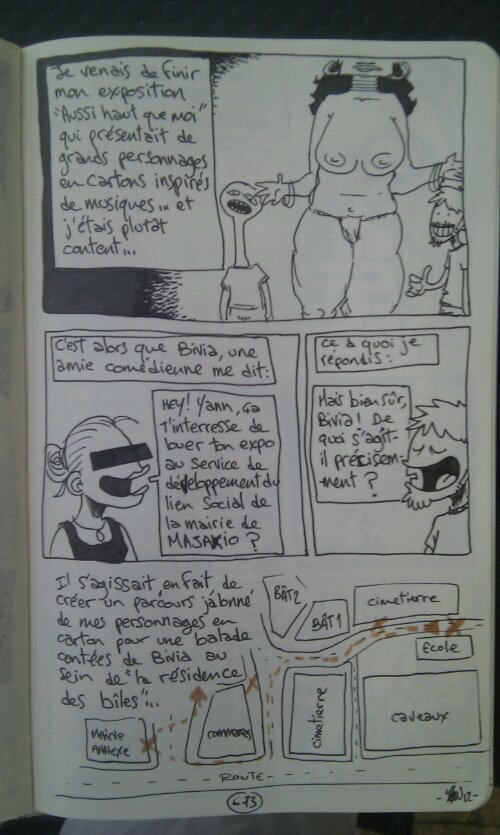 Je venais de finir
mon exposition
"Aussi haut que moi"
qui présentait de
grands personnages
en cartons inspirés
de musiques... et
j'étais plutat
content...
C'est alors que Bivia, une
amie comédienne me dit:
HEY! Yann, ça
t'interresse de
louer ton expo
au service de
développement du
lien social de
la mairie de
MAJAXIO ?
ce à quoi je
répondis:
Mais bien sûr,
Bivia! De
quoi s'agit-
il précisem-
ment ?
Il s'agissait en fait de
créer un parcours jalonné
de mes personnages en
carton pour une balade
contées de Bivia au
sein de "la résidence
des bîles"...
BÂT2
BÂT1
cimetierre
Ecole
MAIRIE
ANNEXE
commerces
cimetierre
caveaux
ROUTE
673